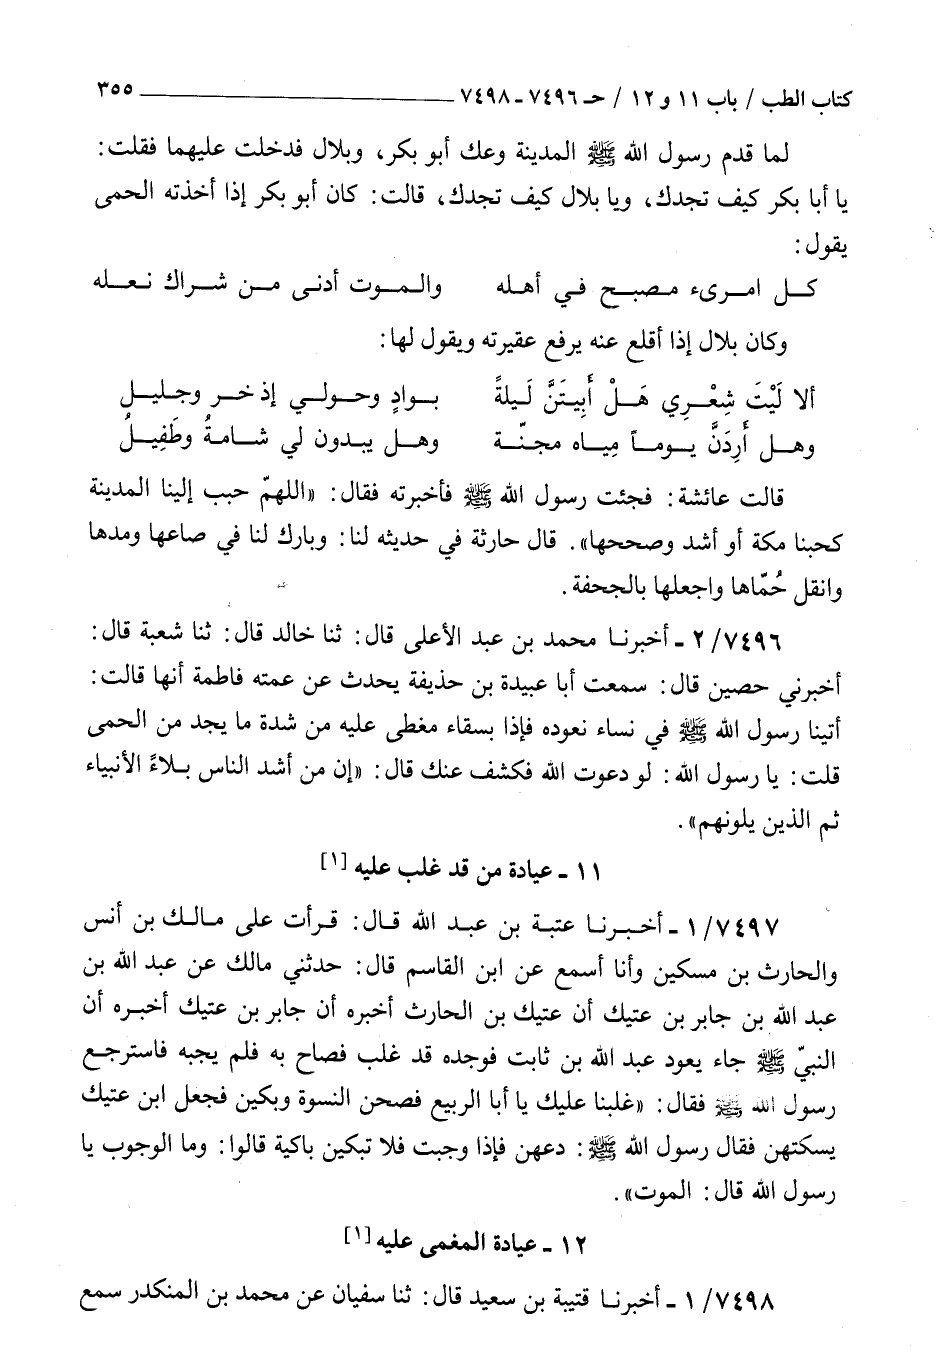 كتاب الطب / باب ١١ و ١٢ / حـ ٧٤٩٦ ـ ٧٤٩٨ ٣٥٥
لما قدم رسول الله ﷺ المدينة وعك أبو بكر، وبلال فدخلت عليهما فقلت:
يا أبا بكر كيف تجدك، ويا بلال كيف تجدك، قالت: كان أبو بكر إذا أخذته الحمى
يقول:
كـل امـرىء مـصبـح فـي أهـله والـمـوت أدنـى مـن شـراك نـعـله
وكان بلال إذا أقلع عنه يرفع عقيرته ويقول لها:
ألا لَيْتَ شِعْـرِي هَـلْ أَبِيـتَنَّ لَـيلةً بـوادٍ وحـولـي إذ خـر وجليـل
وهـل أَرِدَنَّ يـومـاً مِيـاه مجنّـة وهـل يبـدون لي شـامـةُ وطَفِيـلُ
قالت عائشة: فجئت رسول الله ﷺ فأخبرته فقال: «اللهمّ حبب إلينا المدينة
كحبنا مكة أو أشد وصححها». قال حارثة في حديثه لنا: وبارك لنا في صاعها ومدها
وانقل حُمّاها واجعلها بالجحفة.
٧٤٩٦/ ٢ ـ أخبرنـا محمد بن عبد الأعلى قال: ثنا خالد قال: ثنا شعبة قال:
أخبرني حصين قال: سمعت أبا عبيدة بن حذيفة يحدث عن عمته فاطمة أنها قالت:
أتينا رسول الله ﷺ في نساء نعوده فإذا بسقاء مغطى عليه من شدة ما يجد من الحمى
قلت: يا رسول الله: لو دعوت الله فكشف عنك قال: «إن من أشد الناس بـلاءً الأنبياء
ثم الذين يلونهم».
١١ ـ عيادة من قد غلب عليه [١]
٧٤٩٧/ ١ ـ أخـبـرنـا عتبة بن عبـد الله قـال: قـرأت على مـالـك بن أنس
والحارث بن مسكين وأنا أسمع عن ابن القاسم قال: حدثني مالك عن عبد الله بن
عبد الله بن جابر بن عتيك أن عتيك بن الحارث أخبره أن جابر بن عتيك أخبـره أن
النبيّ ﷺ جاء يعود عبد الله بن ثابت فوجده قد غلب فصاح به فلم يجبه فاسترجـع
رسول الله ﷺ فقال: «غلبنا عليك يا أبا الربيع فصحن النسوة وبكين فجعل ابن عتيك
يسكتهن فقال رسول الله ﷺ: دعهن فإذا وجبت فلا تبكين باكية قالوا: وما الوجوب يا
رسول الله قال: الموت».
١٢ ـ عيادة المغمى عليه [١]
٧٤٩٨/ ١ ـ أخبرنـا قتيبة بن سعيد قال: ثنا سفيان عن محمد بن المنكدر سمع